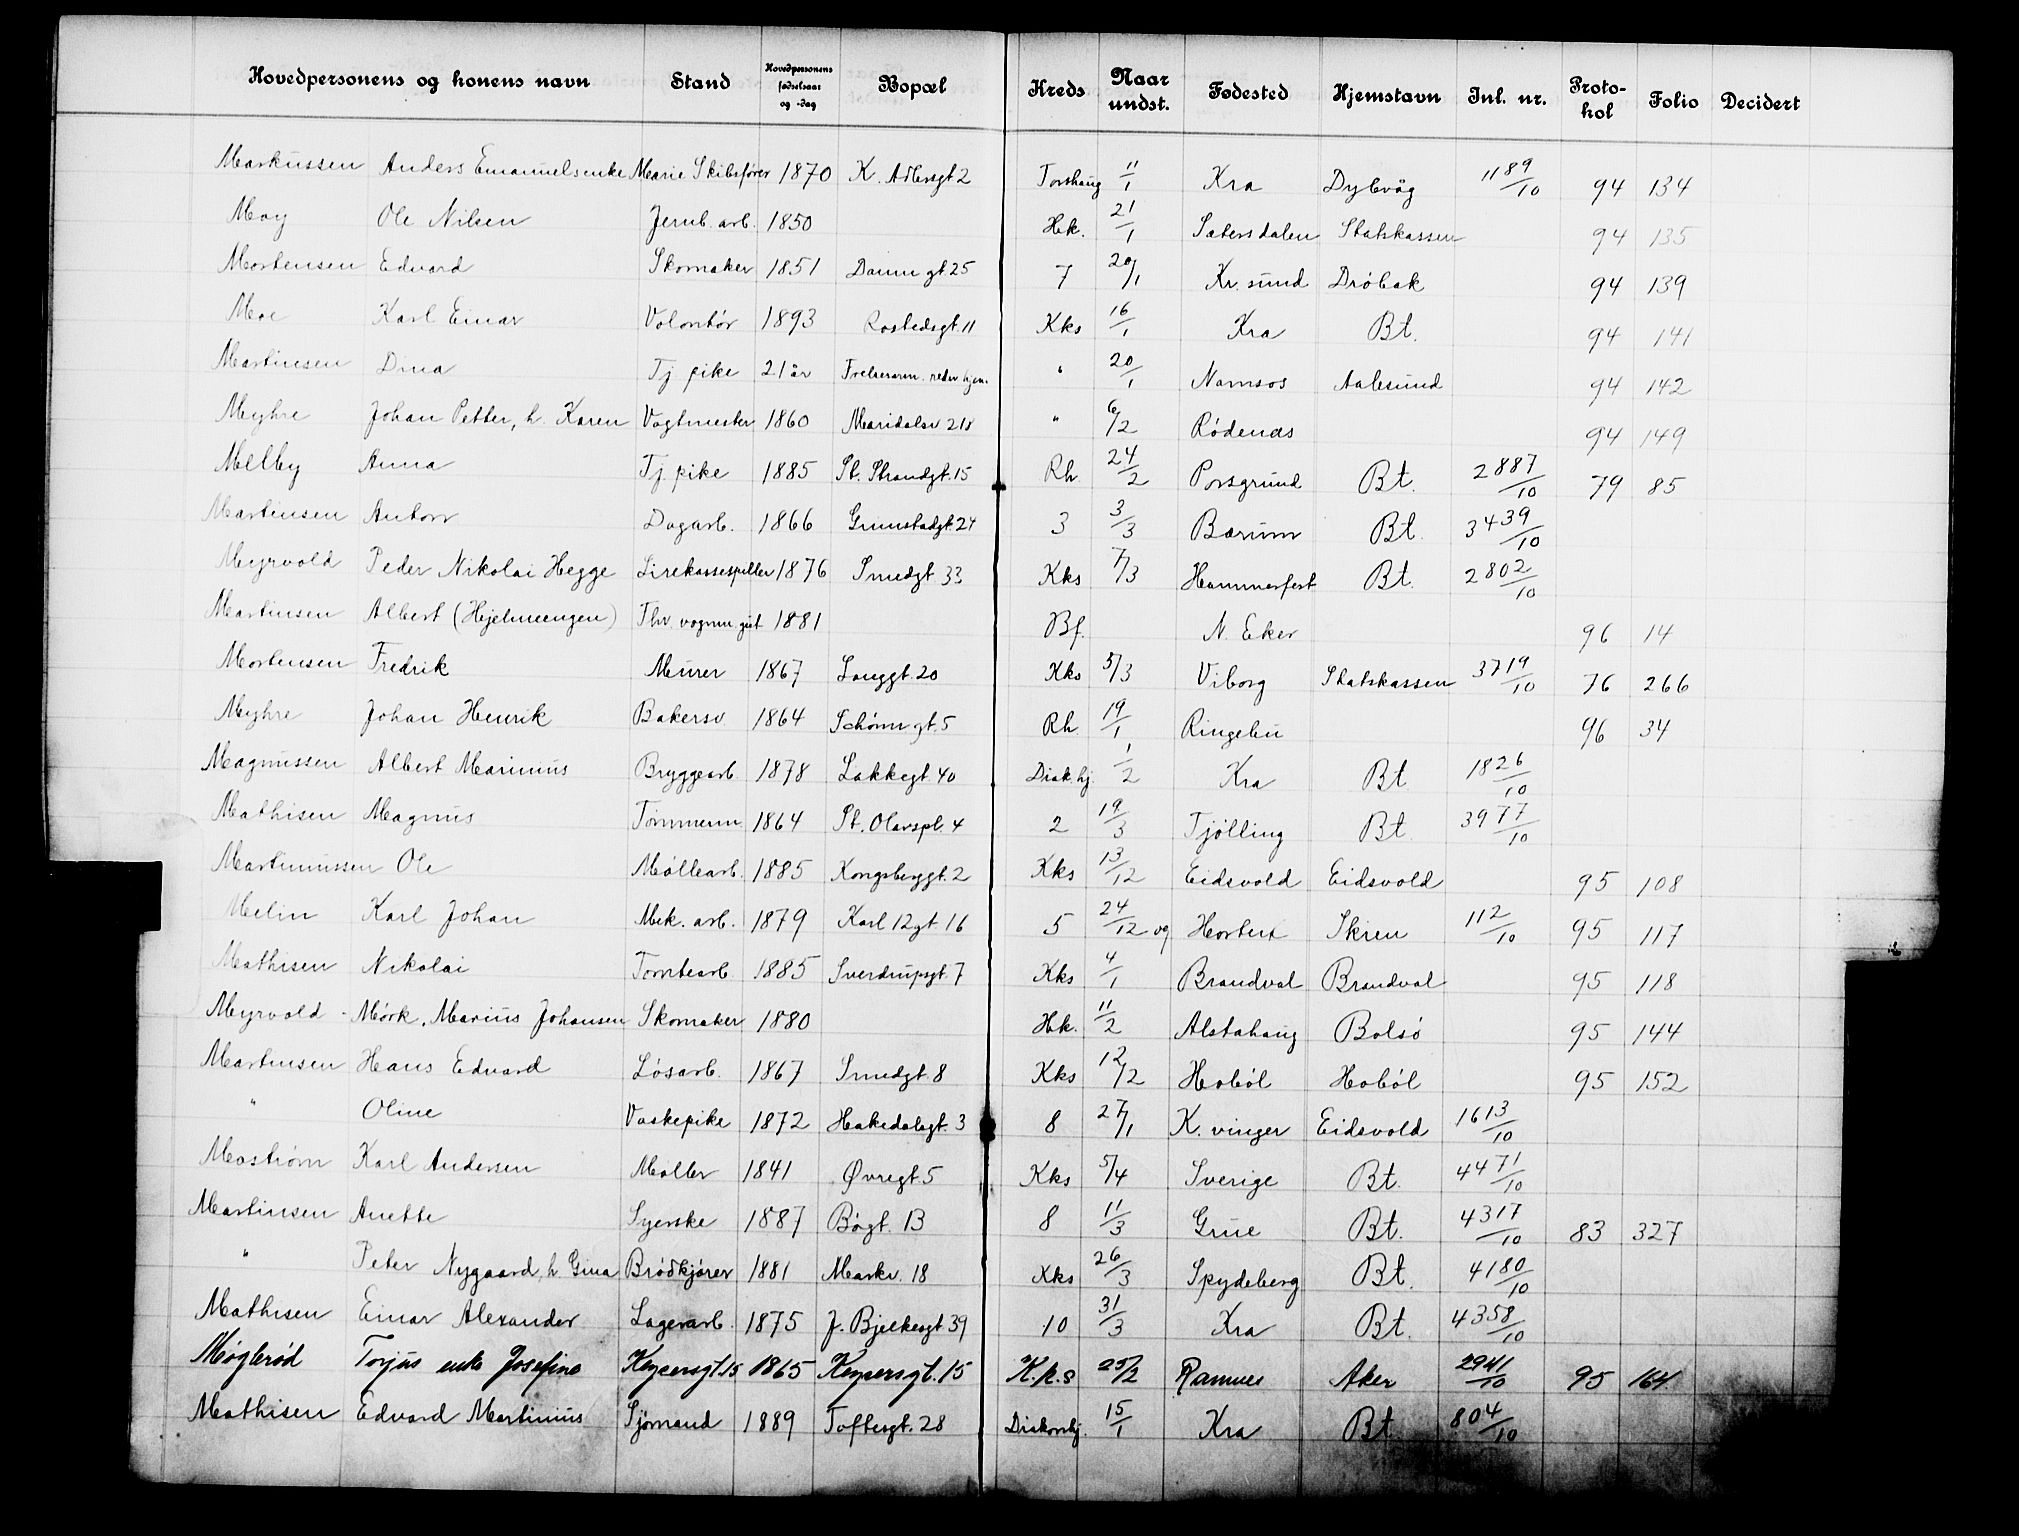 Hovedpersonens og konens navn Stand Hovedpersonens fødselsaar og -dag Bopæl Kreds Naar undst. Fødested Hjemstavn Inl. nr. Protokol Folio Decidert
Markussen Anders Emanuels enke Marie Skibsfører 1870 K. Adlersgt 2 Torshaug 11/1 Kra Dybvåg 1189/10 94 134
Moy Ole Nilsen Jernb. arb. 1850 Hk. 21/1 Sætersdalen Statskassen 94 135
Mortensen Edvard Skomaker 1851 Daum gt 25 7 20/1 Kr. sund Drøbak 94 139
Moe Karl Einar Volontør 1893 Rostedsgt. 11 Kks 16/1 Kra Bt. 94 141
Martinsen Dina Tj. pike 21 år Frelsesarm. redn. hjem. " 20/1 Namsos Aalesund 94 142
Myhre Johan Petter, h. Karen Vagtmester 1860 Maridalsv 218 " 6/2 Rødenes 94 149
Melby Anna Tj. pike 1885 St. Strandgt. 15 Rh 24/2 Porsgrund Bt. 2887/10 79 85
Martinsen Anton Dagarb. 1866 Grimstadgt. 24 3 3/3 Bærum Bt. 3439/10
Myrvold Peder Nikolai Hegge Lirekassespiller 1876 Smedgt. 33 Kks 7/3 Hammerfest Bt. 2802/10
Martinsen Albert (Hjelmeengen) Thv. vognm. gut 1881 Bf. N. Eker 96 14
Mortensen Fredrik Murer 1867 Langgt. 20 Kks 5/3 Viborg Statskassen 3719/10 76 266
Myhre Johan Henrik Bakersv. 1864 Schønn gt. 5 Rh 19/1 Ringebu 96 34
Magnussen Albert Marinius Bryggearb. 1878 Lakkegt. 40 Diak. hj. 1/2 Kra Bt 1826/10
Mathisen Magnus Tømmerm. 1864 St. Olavspl. 4 2 19/3 Tjølling Bt. 3977/10
Martinussen Ole Møllearb. 1885 Kongsberggt. 2 Kks 13/12 Eidsvold Eidsvold 95 108
Melin Karl Johan Mek. arb. 1879 Karl 12 gt 16 5 24/12 09 Horten Skien 112/10 95 117
Mathisen Nikolai Tomtearb. 1885 Sverdrupsgt. 7 Kks 4/1 Brandval Brandval 95 118
Myrvold - Mørk, Marius Johansen Skomaker 1880 Hk. 11/2 Alstahaug Bolsø 95 144
Martinsen Hans Edvard Løsarb. 1867 Smedgt. 8 Kks 12/2 Hobøl Hobøl 95 152
" Oline Vaskepike 1872 Hakedalsgt. 3 8 27/1 K. vinger Eidsvold 1613/10
Mostrøm Karl Andersen Møller 1841 Øvregt. 5 Kks 5/4 Sverige Bt. 4471/10
Martinsen Anette Syerske 1887 Bøgt. 13 8 11/3 Grue Bt. 4317/10 83 327
" Peter Nygaard, h. Gina Brødkjører 1881 Markv. 18 Kks 26/3 Spydeberg Bt. 4180/10
Mathisen Einar Alexander Lagerarb. 1875 J. Bjelkesgt 39 10 31/3 Kra Bt. 4358/10
Møglerød Torjus enke Josefine Keysersgt. 15 1865 Keysersgt. 15 K.k.s 25/2 Ramnes Aker 2941/10 95 164
Mathisen Edvard Martinius Sjømand 1889 Toftesgt. 28 Diakonhj. 15/1 Kra Bt. 804/10